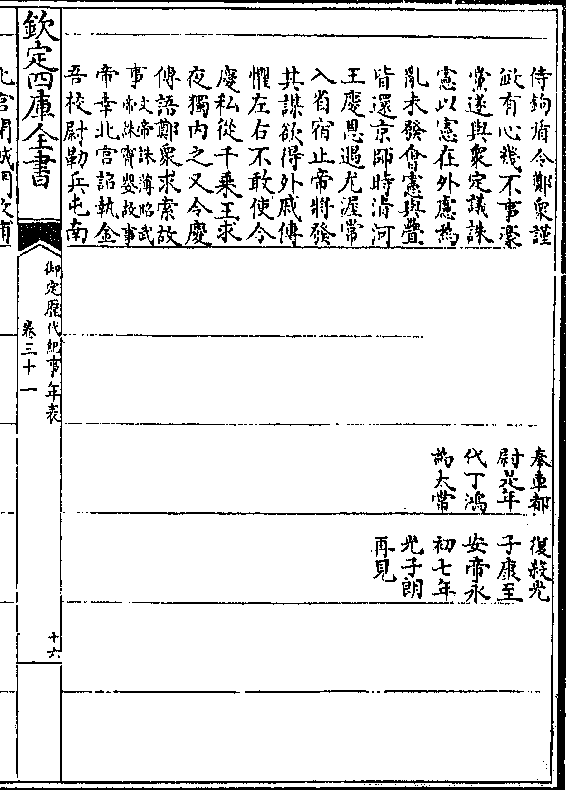 侍鉤盾令鄭衆謹
敏有心幾不事豪
黨遂與衆定議誅
憲以憲在外慮為
亂未發會憲與疊
皆還京師時清河
王慶恩遇尤渥常
入省宿止帝將發
其謀欲得外戚傳
懼左右不敢使令
慶私從千乗王求
夜獨内之又令慶
傳語鄭衆求索故
事文帝誅薄昭武帝誅竇嬰故事
帝幸北宫詔執金
吾校尉勒兵屯南
奉車都
尉是年
代丁鴻
為太常
復殺光
子康至
安帝永
初七年
光子朗
再見
欽定四庫全書
御定歴代紀事年表
卷三十一
十六